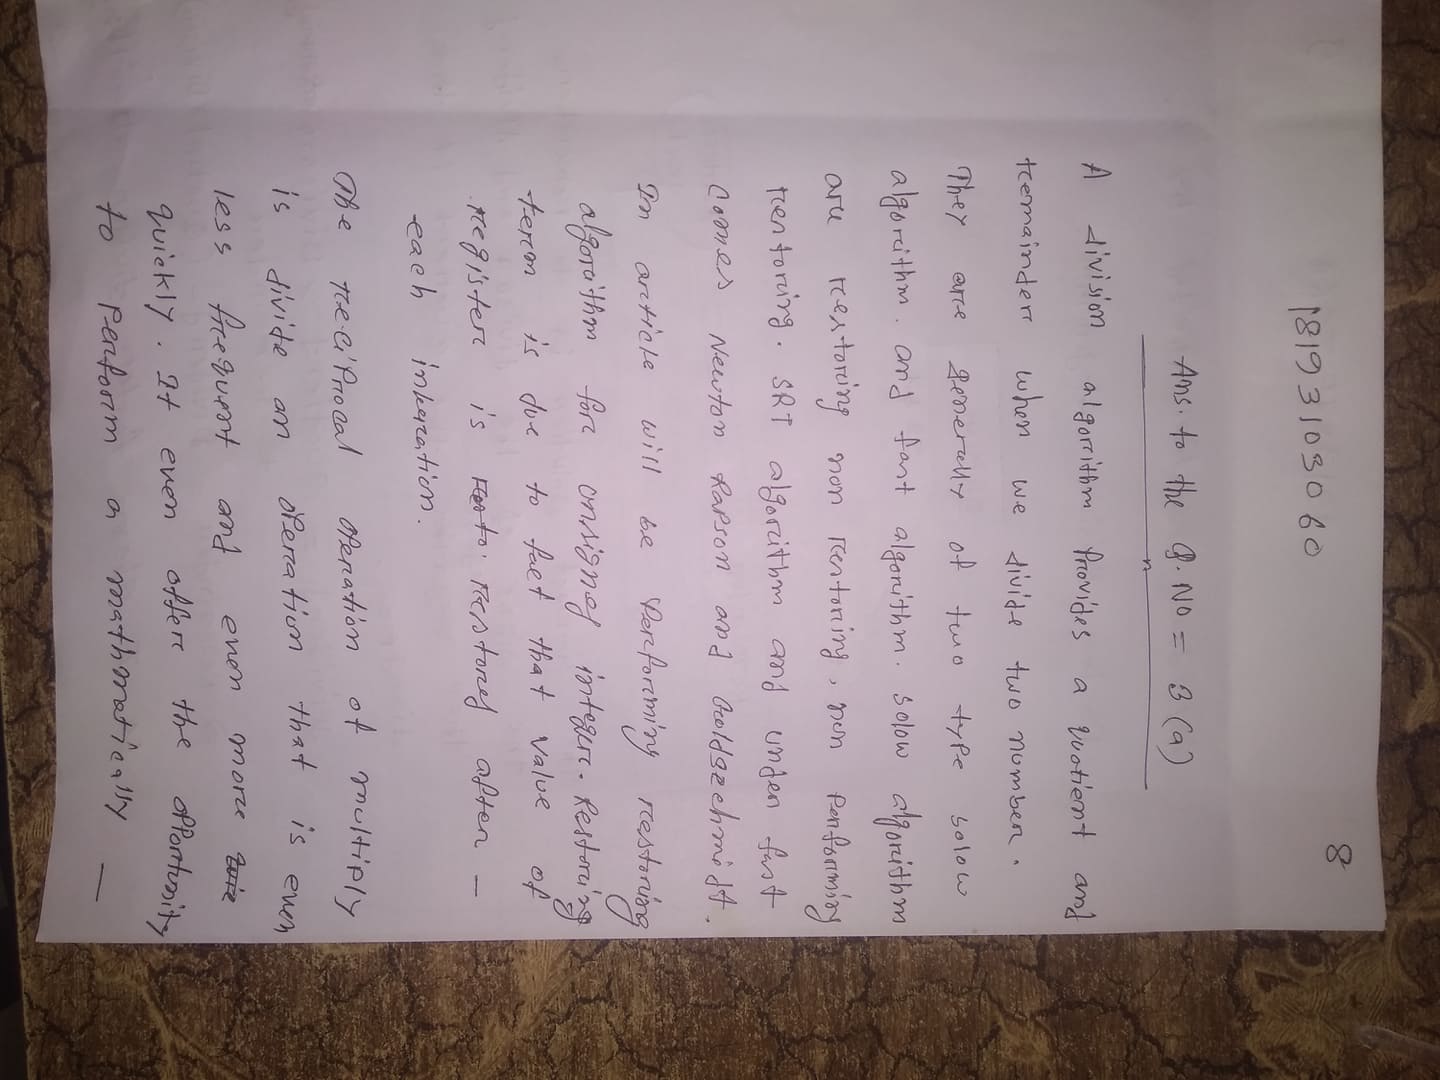 8
18193103060
Ans. to the Q. NO = 3 (a)
A division algorithm Provides a quotient and
remainder when we divide two number.
They are generally of two type solow
algorithm. and fast algorithm. solow algorithm
are restoring non restoring, non Performing
restoring. SRT algorithm and under fast
comes Newton Rapson and Goldszehmidt.
In article will be Performing restoring
algorithm for unsigned integer. Restoring
term is due to fact that value of
register is resto. restored after -
each inkeration.
The reciprocal operation of multiply
is divide an operation that is even
less frequent and even more
quickly. It even offer the opportunity
to Perform a mathmatically -